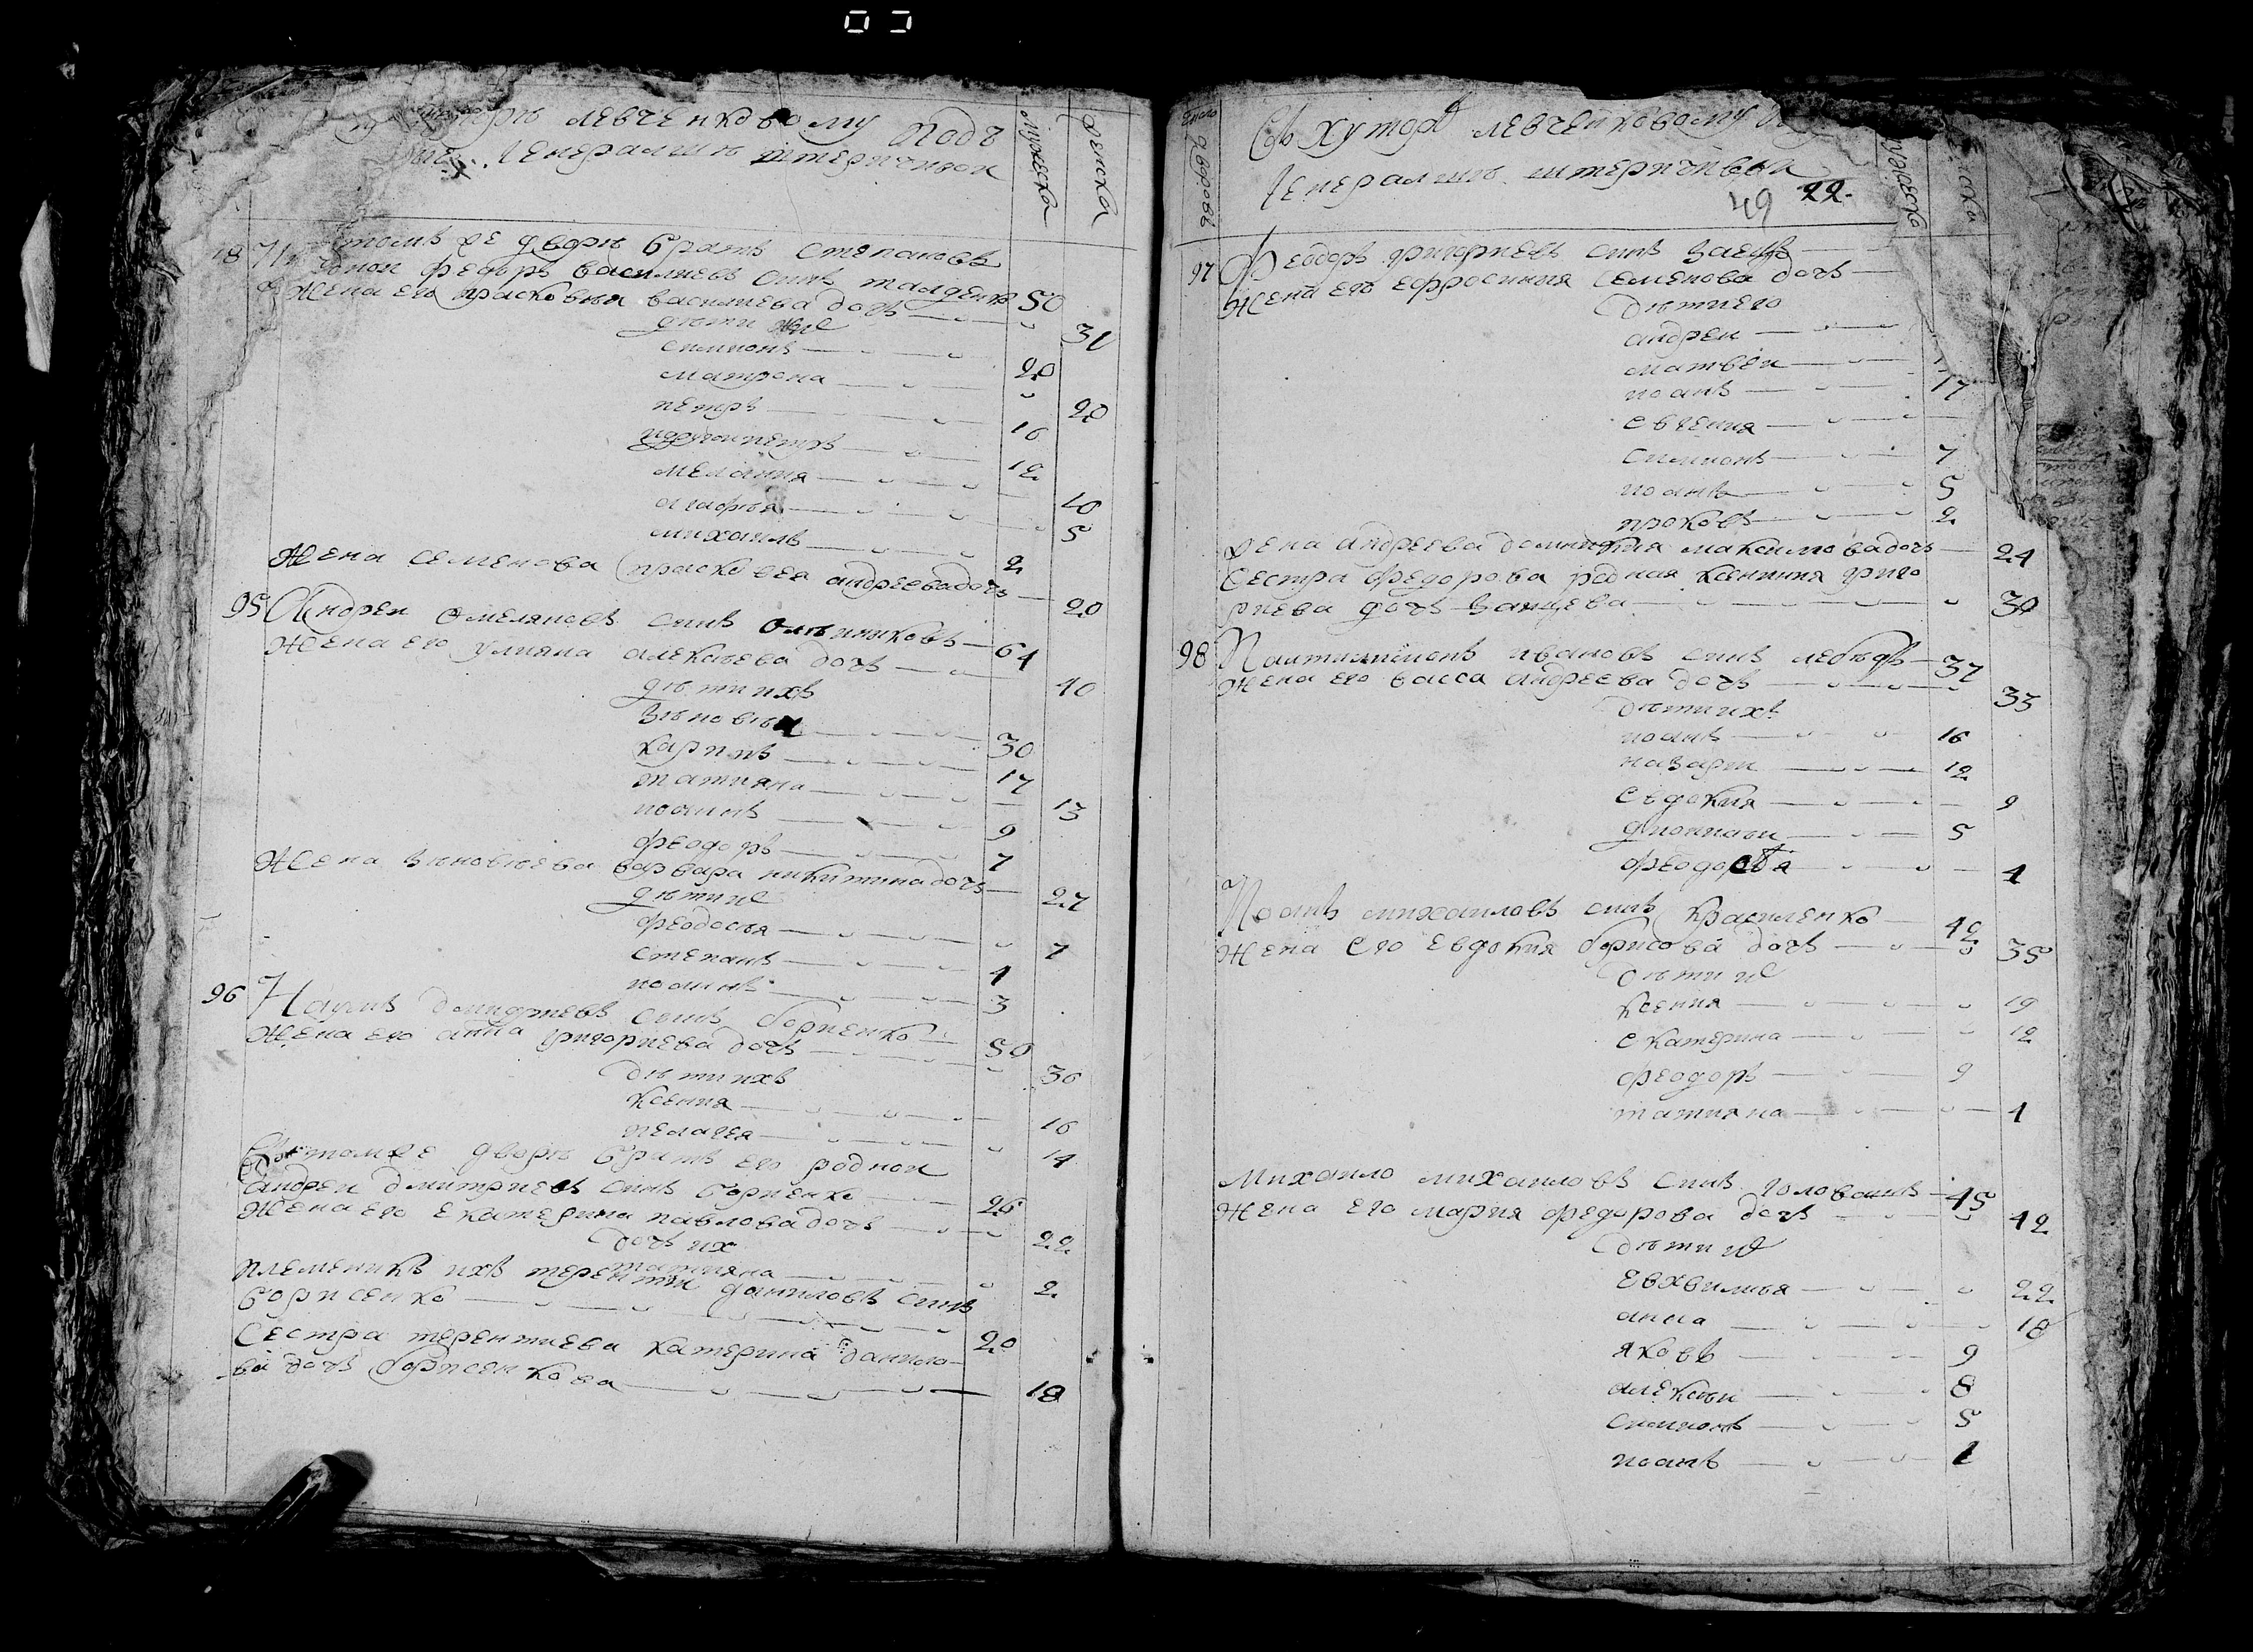 хуторъ левченковому подъ
генералши штеричевои
мужеска
женска
18 И в томъ же дворѣ братъ степановъ
роднои федоръ василиевъ синъ талденко 50
Жена его прасковия василиева дочь 31
дѣти ихъ
симионъ 20
матрона 20
петръ 16
идругоипетръ 12
мелания 10
агафия 5
михаилъ 2
Жена семенова прасковея андреевадочъ 20
95 Андреи омеляновъ синъ олѣиниковъ 64
Жена его улияна алексѣева дочъ 40
дѣти ихъ
Зѣновѣи 30
карпъ 17
татияна 13
иоаннъ 9
феодоръ 7
Жена зиновѣева варвара никитинадочъ 27
дѣти ихъ
феодосия 7
степанъ 4
иоаннъ 3
96 Наумъ дмитриевъ синъ бориенко 50
Жена его анна григориева дочъ 36
дѣти ихъ
ксения 16
пелагея 14
Втомже дворѣ братъ его роднои
Андреи дмитриевъ синъ бориенко 26
Жена его екатерина павловадочъ 22
дочъ их
татияна 2
племеникъ ихъ терентии даниловъ синъ
борисенко 20
Сестра терентиева катерина данило-
ва дочъ борисенкова 18
число дворовъ
Въ хуторѣ левченковому
генералши штеричевои
49 22.
мужеска
97 Феодоръ григориевъ синъ заецъ
Жена его ефросиния семенова дочъ
Дѣтиего
андреи
матвеи
иоанъ 17
евгения
симионъ 7
иоанъ 5
яковъ 2
Жена андреева домникия максимовадочъ 24
Сестра федорова родная ксенния григо
риева дочъ заицева 30
98 Пантилимонъ ивановъ синъ лебедь 37
Жена его васса андреева дочъ 33
Дѣтиихъ
иоанъ 16
назари 12
евдокия 9
дионисии 5
феодосия 4
Иоанъ михаиловъ синъ красиленко 42
Жена его евдокия борисова дочъ 35
Дѣти ихъ
ксения 19
екатерина 12
феодоръ 9
татияна 4
Михаило михаиловъ синъ головашъ 45
Жена его мария федорова дочъ 42
Дѣти ихъ
евхвимия 22
анна 18
яковъ 9
алексѣи 8
симионъ 5
иоанъ 1